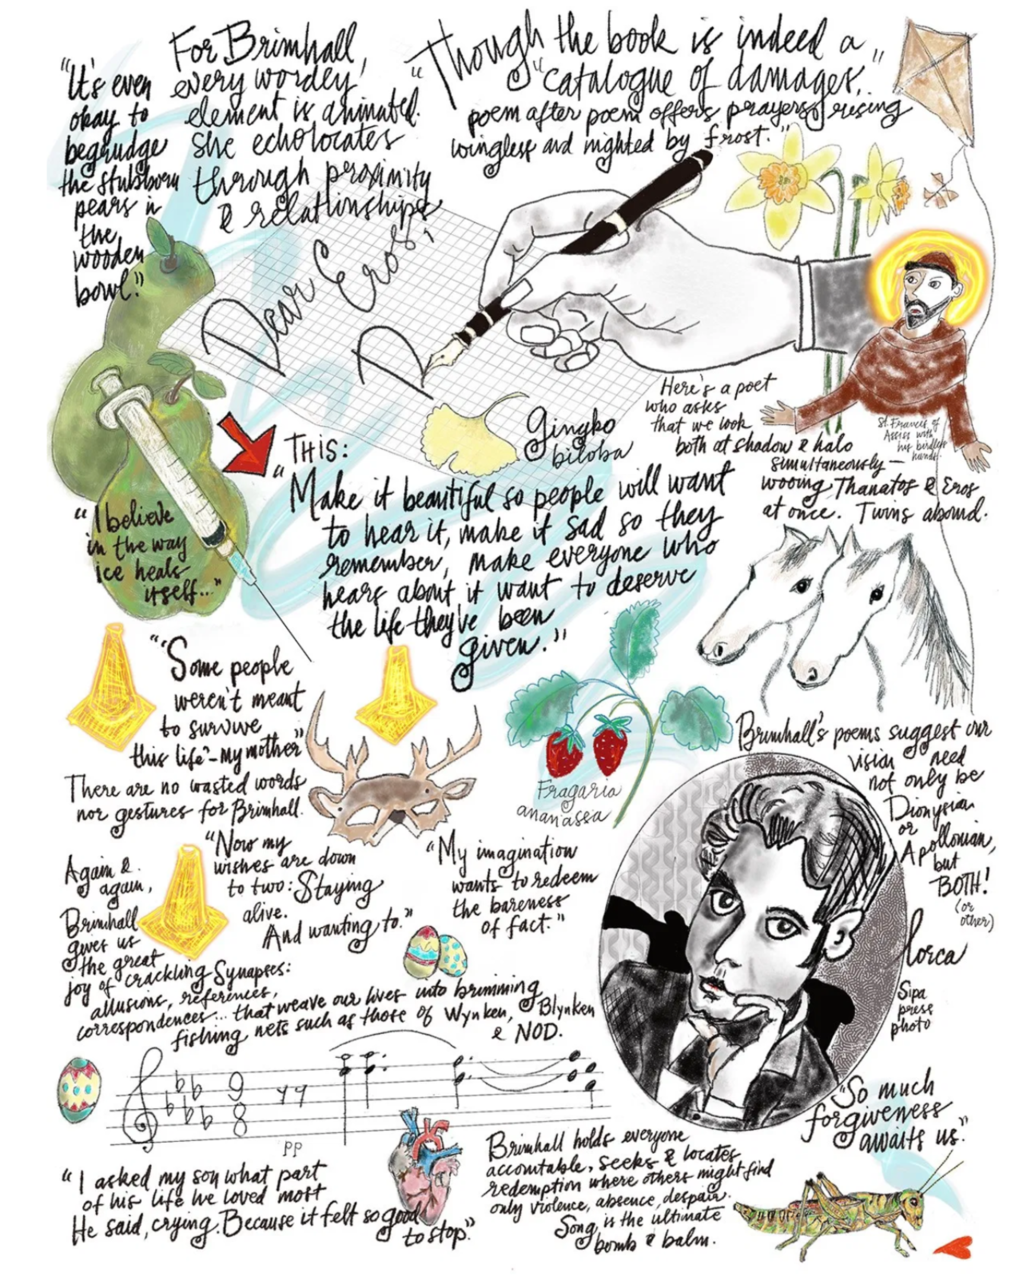 "It's even
okay to
begrudge
the stubborn
pears in
the
wooden
bowl."
For Brimhall,
every wordey
element is animated.
She echolocates
through proximity
& relationships.
"Though the book is indeed a
"catalogue of damages,"
poem after poem offers prayers, rising
wingless and nighted by frost."
Dear Eros,
D
Gingko
biloba
Here's a poet
who asks
that we look
both at shadow & halo
simultaneously —
wooing Thanatos & Eros
at once. Twins abound.
St. Francis of
Assisi with
his birdless
hands
THIS:
"Make it beautiful so people will want
to hear it, make it sad so they
remember, make everyone who
hears about it want to deserve
the life they've been
given."
"I believe
in the way
ice heals
itself..."
"Some people
weren't meant
to survive
this life"-my mother"
There are no wasted words
nor gestures for Brimhall.
Fragaria
ananassa
Brimhall's poems suggest our
vision need
not only be
Dionysian
or
Apollonian,
but
BOTH!
(or
other)
"Now my
wishes are down
to two: Staying
alive.
And wanting to."
"My imagination
wants to redeem
the bareness
of fact."
Again &
again,
Brimhall
gives us
the great
joy of crackling synapses:
allusions, references,
correspondences... that weave our lives into brimming
fishing nets such as those of Wynken, Blynken
& NOD.
Lorca
Sipa
press
photo
9
8
pp
"So much
forgiveness
awaits us."
"I asked my son what part
of his life he loved most
He said, crying. Because it felt so good
to stop."
Brimhall holds everyone
accountable, seeks & locates
redemption where others might find
only violence, absence, despair.
Song, is the ultimate
bomb & balm.